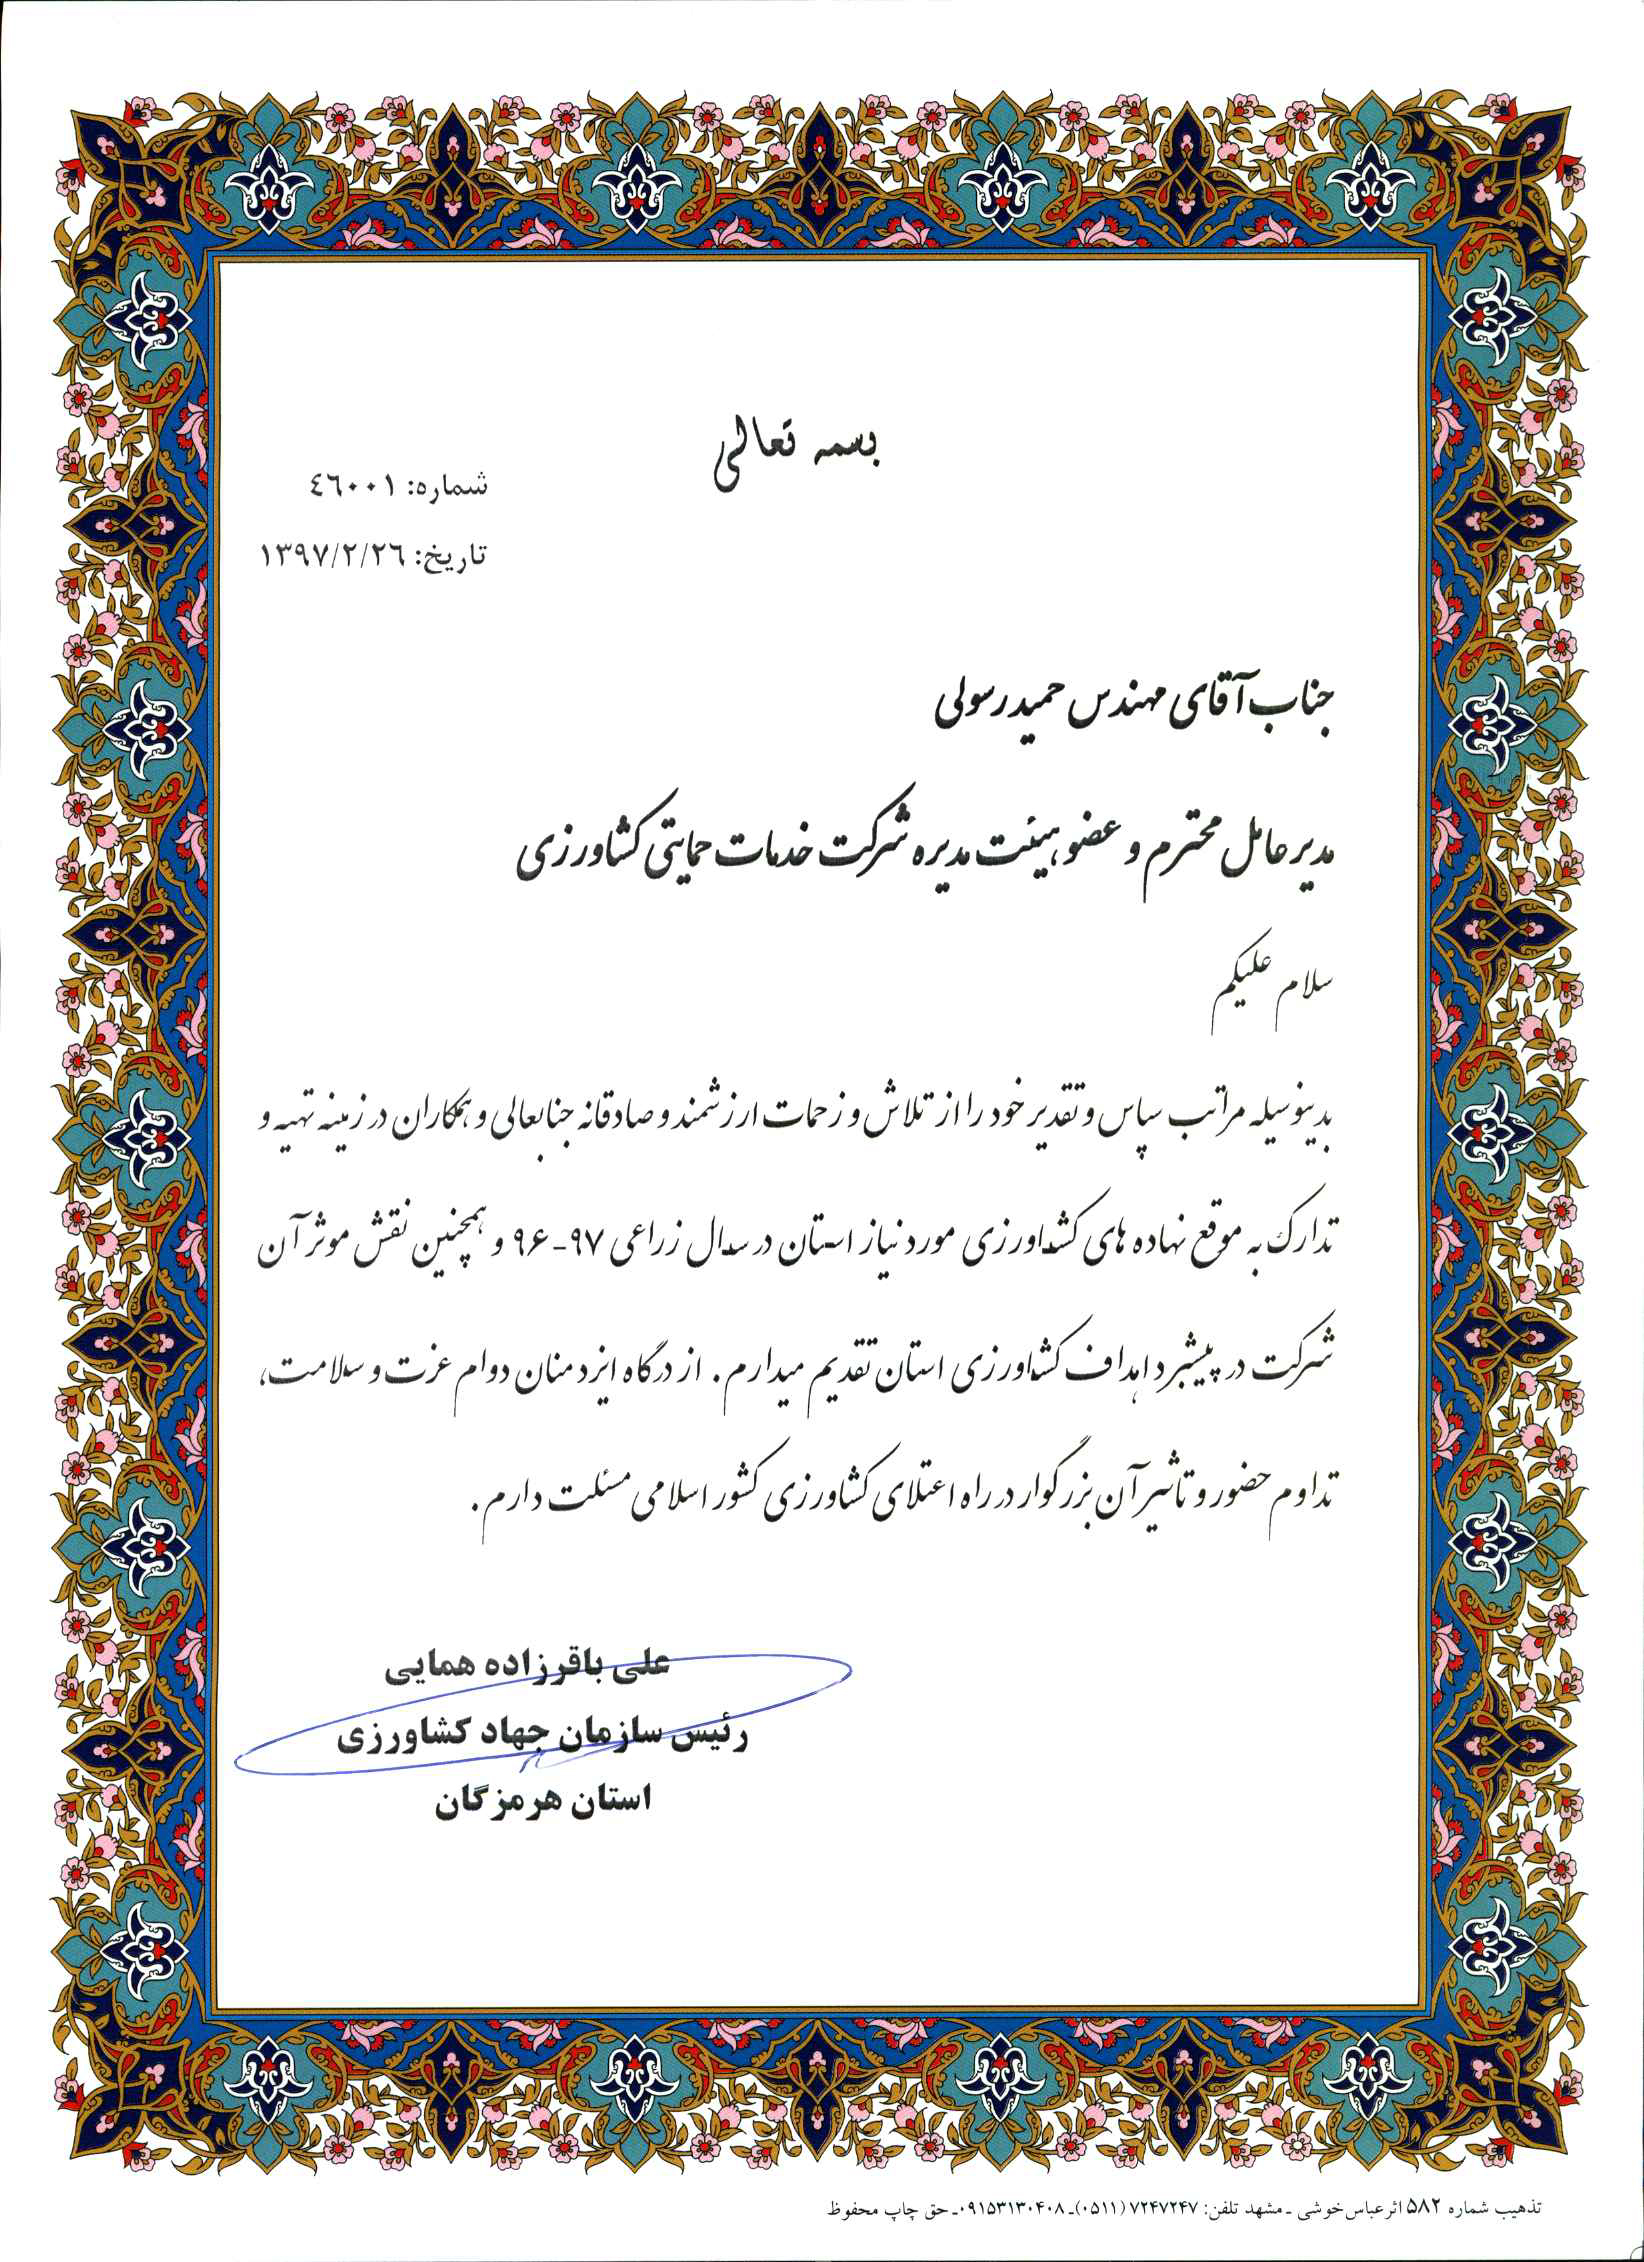 بسمه تعالی
شماره: ٤٦٠٠١
تاریخ: ١٣٩٧/٢/٢٦
جناب آقای مهندس حمید رسولی
مدیر عامل محترم و عضو هیئت مدیره شرکت خدمات حمایتی کشاورزی
سلام علیکم
بدینوسیله مراتب سپاس و تقدیر خود را از تلاش و زحمات ارزشمند و صادقانه جنابعالی و همکاران در زمینه تهیه و
تدارک به موقع نهاده های کشاورزی مورد نیاز استان در سال زراعی ۹۷-۹۶ و همچنین نقش موثر آن
شرکت در پیشبرد اهداف کشاورزی استان تقدیم میدارم. از درگاه ایزد منان دوام عزت و سلامت،
تداوم حضور و تاثیر آن بزرگوار در راه اعتلای کشاورزی کشور اسلامی مسئلت دارم.
علی باقرزاده همایی
رئیس سازمان جهاد کشاورزی
استان هرمزگان
تذهیب شماره ۵۸۲ اثر عباس خوشی ـ مشهد تلفن: ۷۲۴۷۲۴۷ (۰۵۱۱)ـ ۰۹۱۵۳۱۳۰۴۰۸ـ حق چاپ محفوظ